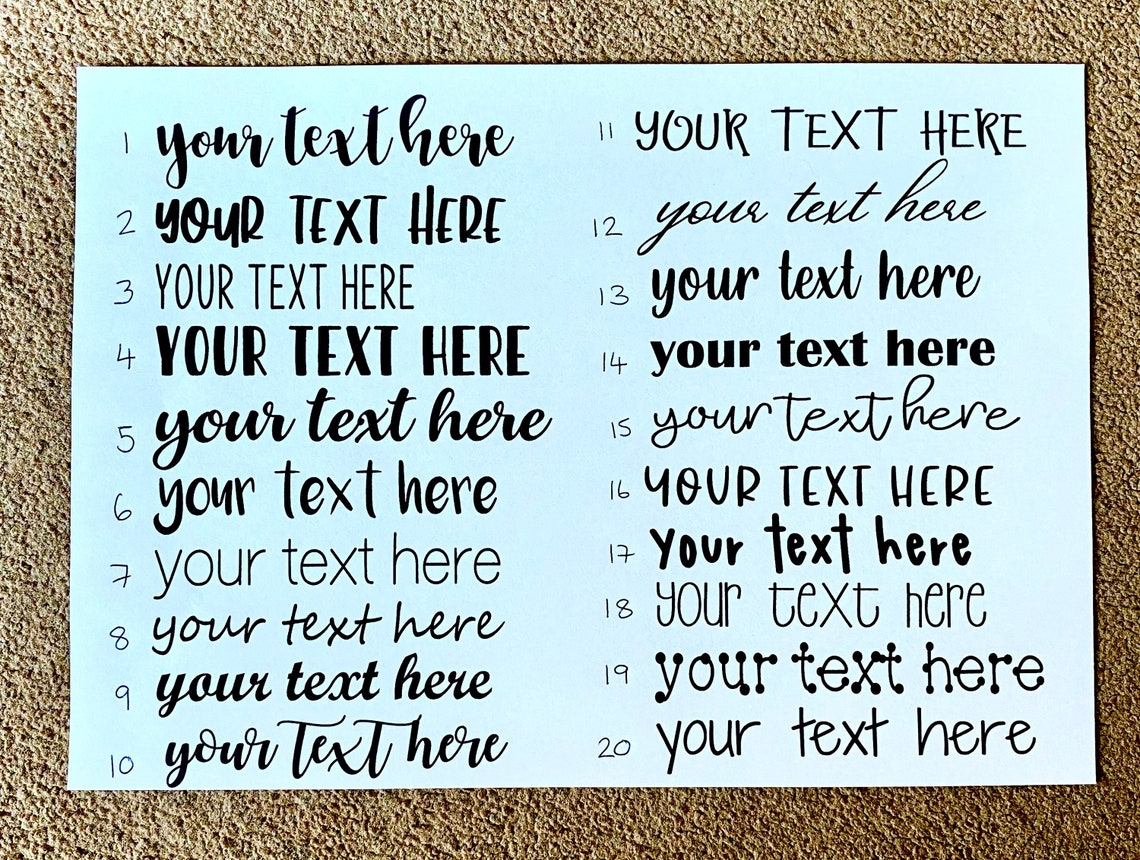 1 your text here
2 YOUR TEXT HERE
3 YOUR TEXT HERE
4 YOUR TEXT HERE
5 your text here
6 your text here
7 your text here
8 your text here
9 your text here
10 your text here
11 YOUR TEXT HERE
12 your text here
13 your text here
14 your text here
15 your text here
16 YOUR TEXT HERE
17 your text here
18 your text here
19 your text here
20 your text here